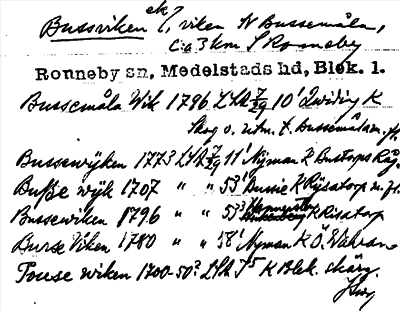 Bussviken ek?, viken N Bussemåla,
c:a 3 km S Ronneby
Ronneby sn, Medelstads hd, Blek. l.
Bussemåla Wik 1796 LSA 7/29 10¹ Qwiding K
Skog o. utm. t. Bussemåla
Bussewijken 1773 LSA 7/29 11¹ Nyman K Bustorps
Busse wijk 1707 " " 53¹ Bussie K Risatorp
Bussewiken 1796 " " 55³ K Risatorp
Burse Viken 1780 " " 58¹ Nyman K Ö. Währan
Pouse wiken 1700-50? LSA K Blek. skärg.